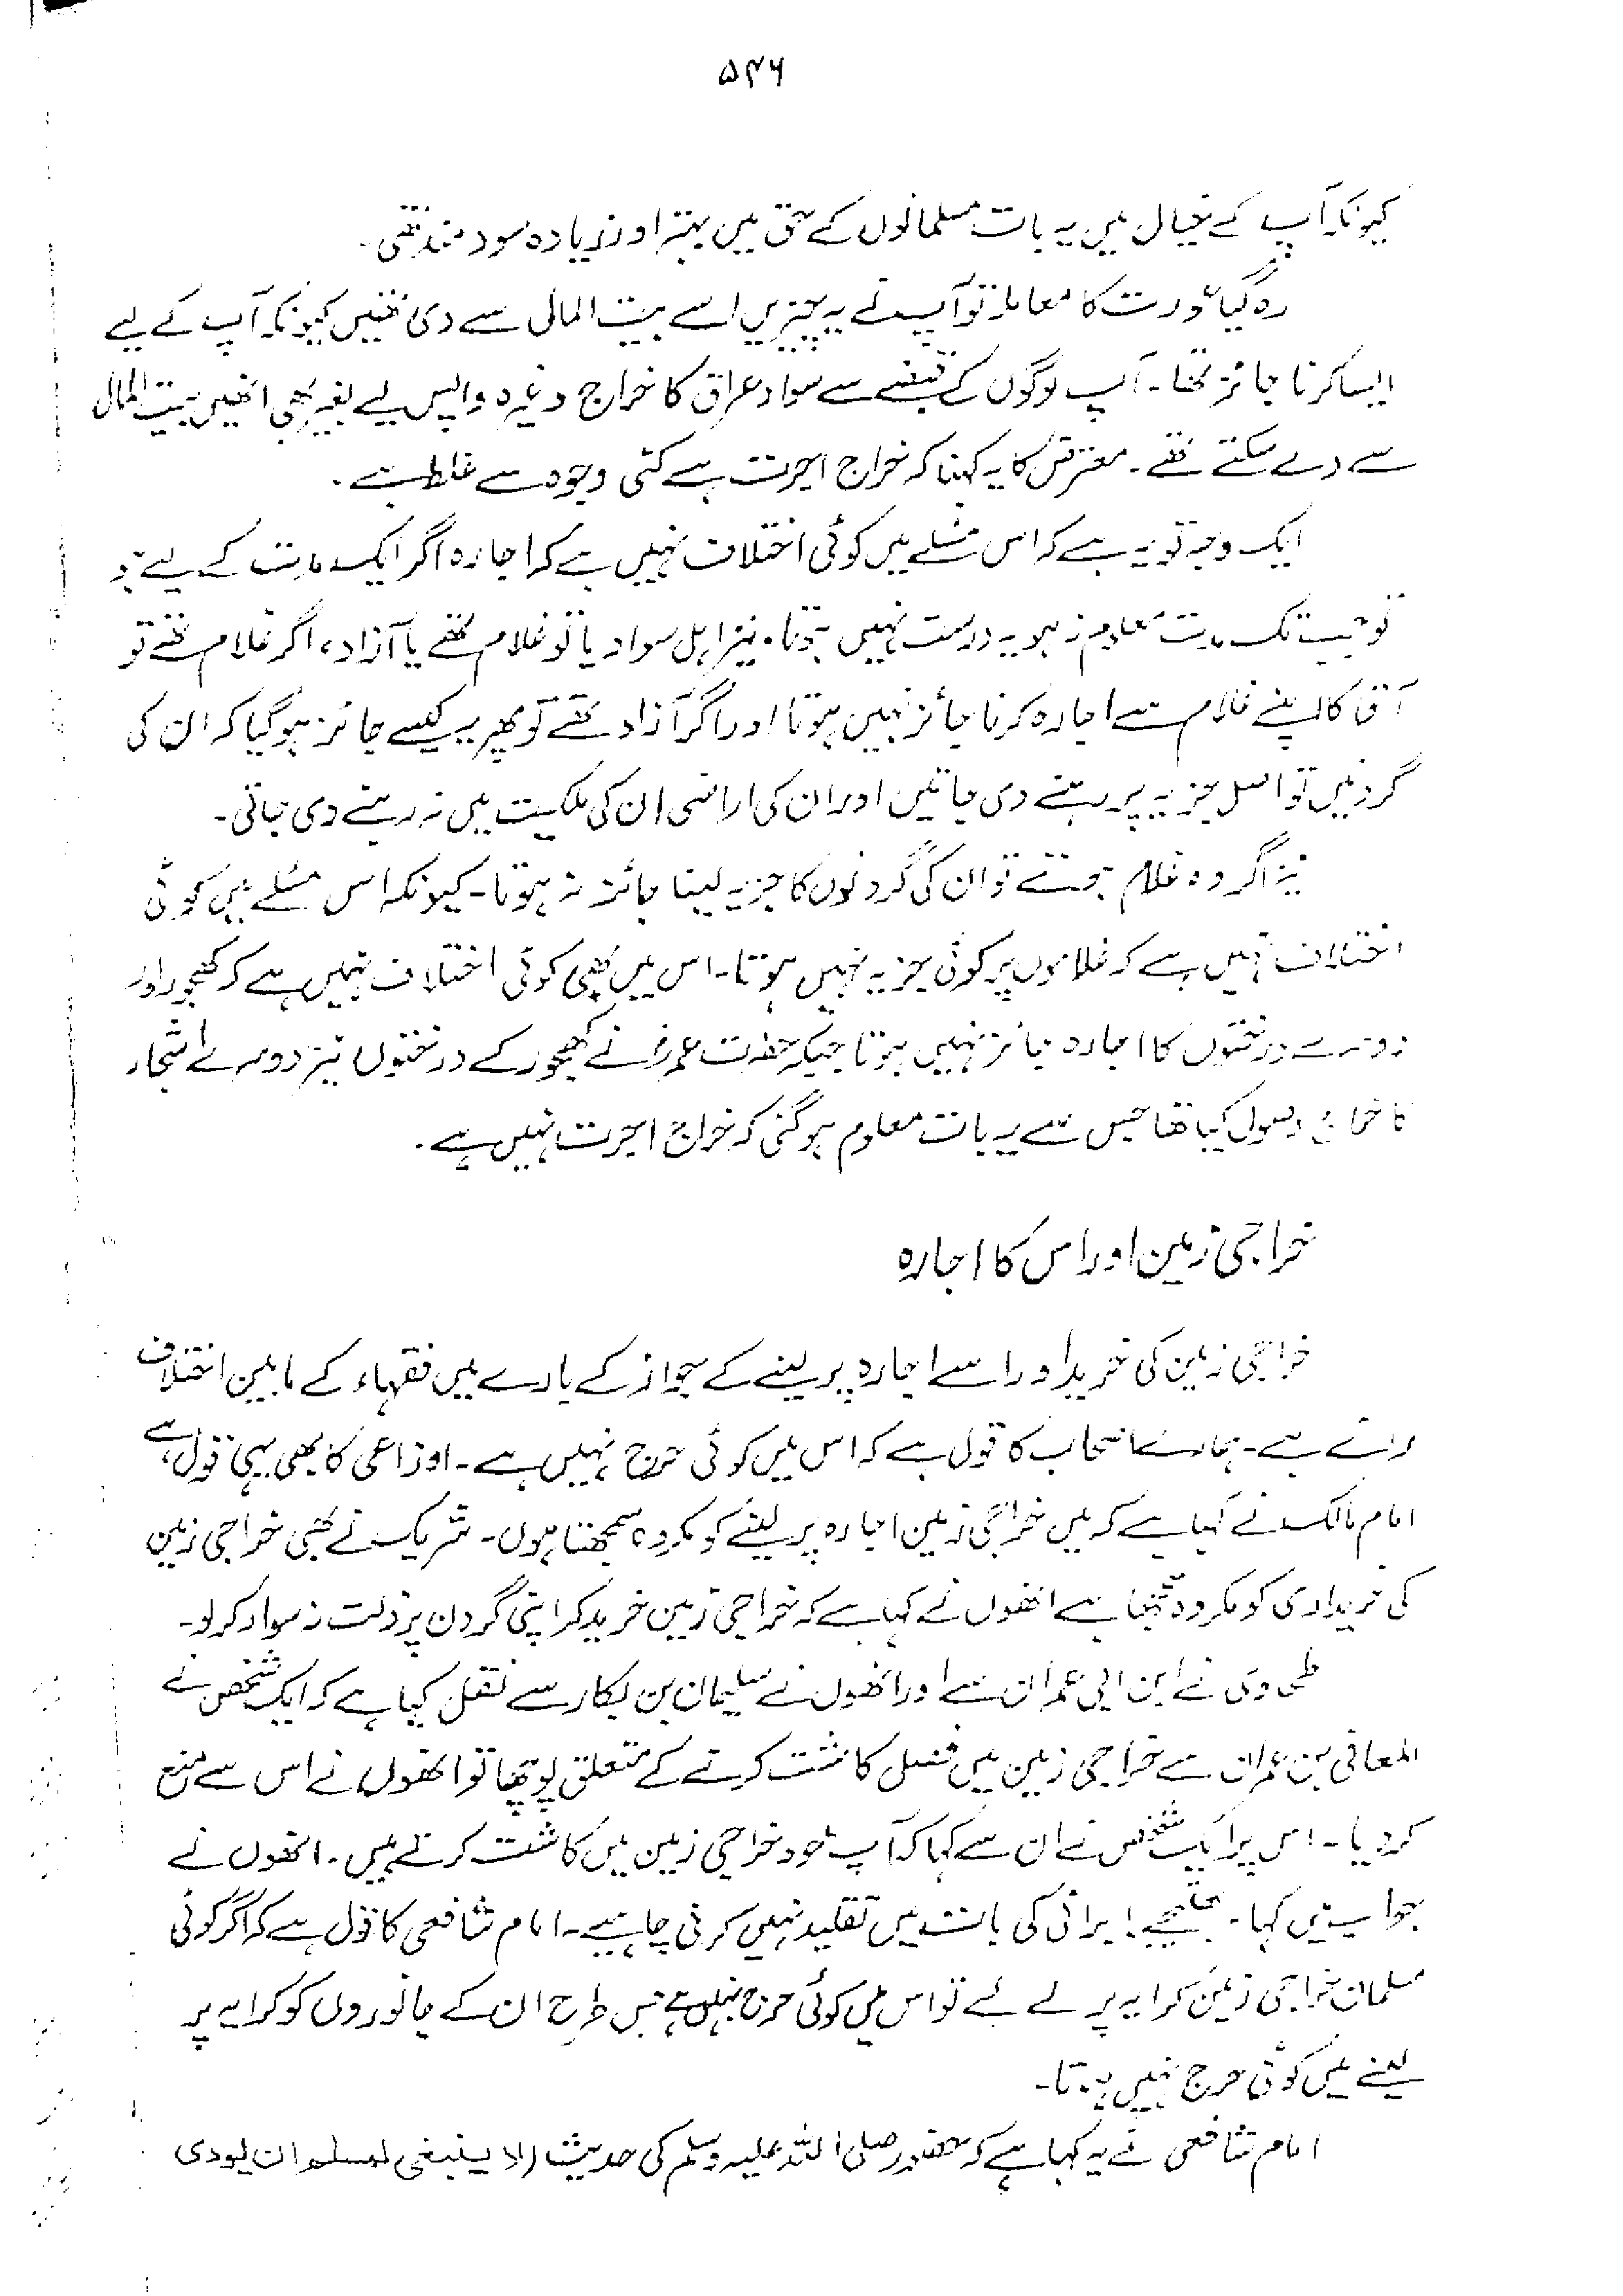 ۵۴۶
کیونکہ آپ کے خیال میں یہ بات مسلمانوں کے حق میں بہتر اور زیادہ سود مند تھی۔
رہ گیا عورت کا معاملہ تو آپ نے یہ چیزیں اسے بیت المال سے دی تھیں کیونکہ آپ کے لیے
ایسا کرنا جائز تھا۔ آپ لوگوں کے قبضے سے سواد عراق کا خراج وغیرہ واپس لیے بغیر بھی انھیں بیت المال
سے دے سکتے تھے۔ معترض کا یہ کہنا کہ خراج اجرت ہے کئی وجوہ سے غلط ہے۔
ایک وجہ تو یہ ہے کہ اس مسئلے میں کوئی اختلاف نہیں ہے کہ اجارہ اگر ایک مدت کے لیے ہو
تو جب تک مدت معلوم نہ ہو یہ درست نہیں ہوتا۔ نیز اہل سواد یا تو غلام تھے یا آزاد، اگر غلام تھے تو
آقا کا اپنے غلام سے اجارہ کرنا جائز نہیں ہوتا اور اگر آزاد تھے تو پھر یہ کیسے جائز ہو گیا کہ ان کی
گردنیں تو اصل جزیہ پر رہنے دی جاتیں اور ان کی اراضی ان کی ملکیت میں نہ رہنے دی جاتی۔
نیز اگر وہ غلام ہوتے تو ان کی گردنوں کا جزیہ لینا جائز نہ ہوتا۔ کیونکہ اس مسئلے میں کوئی
اختلاف نہیں ہے کہ غلاموں پر کوئی جزیہ نہیں ہوتا۔ اس میں بھی کوئی اختلاف نہیں ہے کہ کھجور اور
دوسرے درختوں کا اجارہ جائز نہیں ہوتا جبکہ حضرت عمرؓ نے کھجور کے درختوں نیز دوسرے اشجار
کا خراج وصول کیا تھا جس سے یہ بات معلوم ہو گئی کہ خراج اجرت نہیں ہے۔
خراجی زمین اور اس کا اجارہ
خراجی زمین کی خرید اور اسے اجارہ پر لینے کے جواز کے بارے میں فقہاء کے مابین اختلاف
رائے ہے۔ ہمارے اصحاب کا قول ہے کہ اس میں کوئی حرج نہیں ہے۔ اوزاعی کا بھی یہی قول ہے
امام مالک نے کہا ہے کہ میں خراجی زمین اجارہ پر لینے کو مکروہ سمجھتا ہوں۔ شریک نے بھی خراجی زمین
کی خریداری کو مکروہ سمجھا ہے انھوں نے کہا ہے کہ خراجی زمین خرید کر اپنی گردن پر ذلت نہ سوار کر لو۔
طحاوی نے ابن ابی عمران سے اور انھوں نے سلیمان بن بکار سے نقل کیا ہے کہ ایک شخص نے
المعافی بن عمران سے خراجی زمین میں فصل کاشت کرنے کے متعلق پوچھا تو انھوں نے اس سے منع
کر دیا۔ اس پر ایک شخص نے ان سے کہا کہ آپ خود خراجی زمین میں کاشت کرتے ہیں۔ انھوں نے
جواب میں کہا۔ بھتیجے! برائی کی بات میں تقلید نہیں کرنی چاہیے۔ امام شافعی کا قول ہے کہ اگر کوئی
مسلمان خراجی زمین کرایہ پر لے لے تو اس میں کوئی حرج نہیں ہے جس طرح ان کے جانوروں کو کرایہ پر
لینے میں کوئی حرج نہیں ہوتا۔
امام شافعی نے یہ کہا ہے کہ حضور صلی اللہ علیہ وسلم کی حدیث (لا ینبغی لمسلم ان یودی